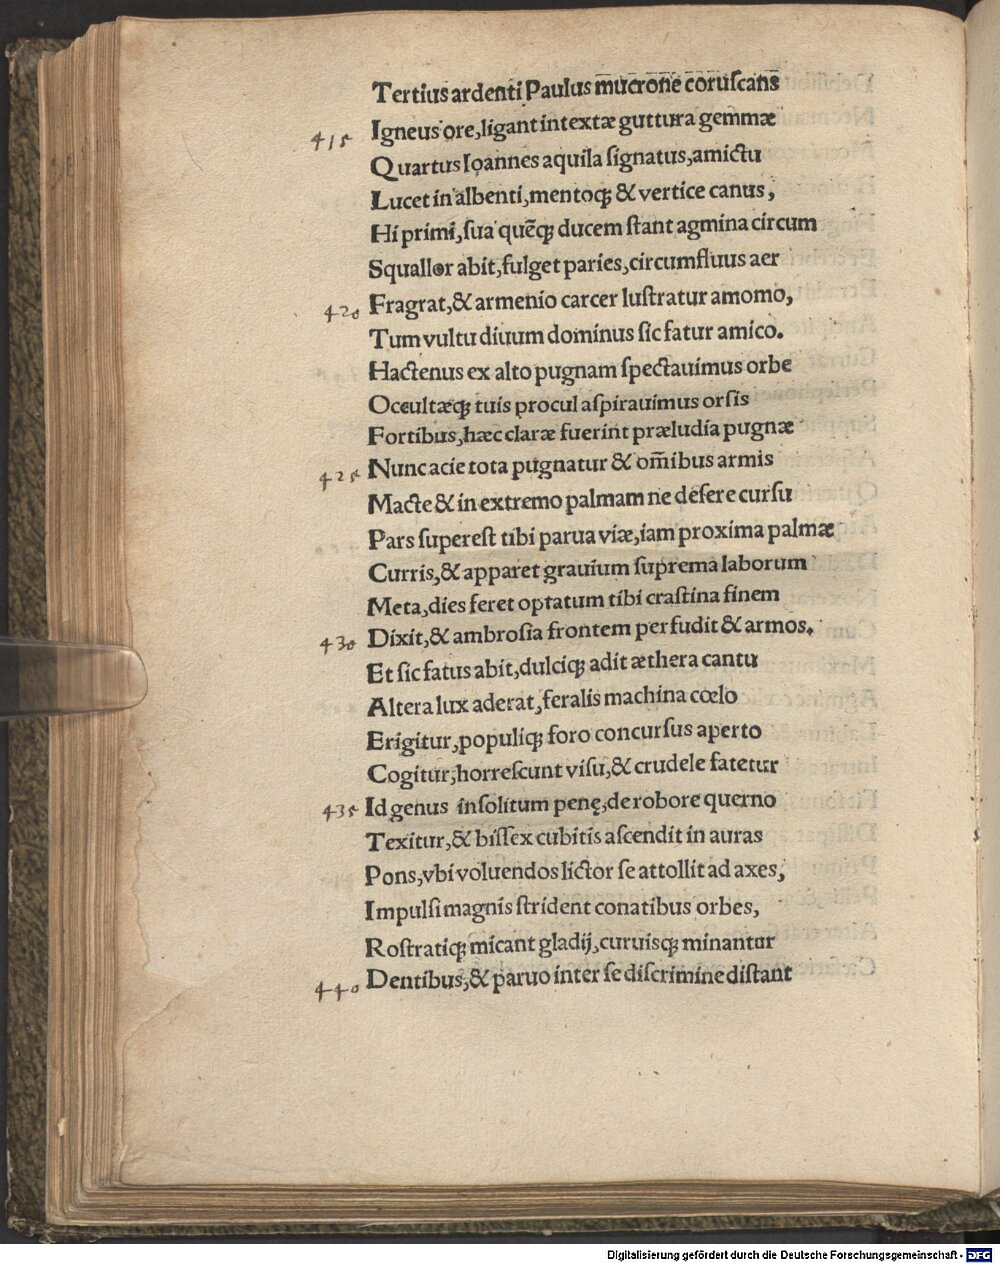 Tertius ardenti Paulus mucrone coruscans
415 Igneus ore, ligant intextæ guttura gemmæ
Quartus Ioannes aquila signatus, amictu
Lucet in albenti, mentoq; & vertice canus,
Hi primi, sua quēq; ducem stant agmina circum
Squallor abit, fulget paries, circumfluus aer
420 Fragrat, & armenio carcer lustratur amomo,
Tum vultu diuum dominus sic fatur amico.
Hactenus ex alto pugnam spectauimus orbe
Occultæq; tuis procul aspirauimus orsis
Fortibus, hæc claræ fuerint præludia pugnæ
425 Nunc acie tota pugnatur & om̄ibus armis
Macte & in extremo palmam ne desere cursu
Pars superest tibi parua viæ, iam proxima palmæ
Curris, & apparet grauium suprema laborum
Meta, dies feret optatum tibi crastina finem
430 Dixit, & ambrosia frontem perfudit & armos.
Et sic fatus abit, dulciq; adit æthera cantu
Altera lux aderat, feralis machina cœlo
Erigitur, populiq; foro concursus aperto
Cogitur, horrescunt visu, & crudele fatetur
435 Id genus insolitum penę, de robore querno
Texitur, & bissex cubitis ascendit in auras
Pons, vbi voluendos lictor se attollit ad axes,
Impulsi magnis strident conatibus orbes,
Rostratiq; micant gladij, curuisq; minantur
440 Dentibus, & paruo inter se discrimine distant
Digitalisierung gefördert durch die Deutsche Forschungsgemeinschaft - DFG